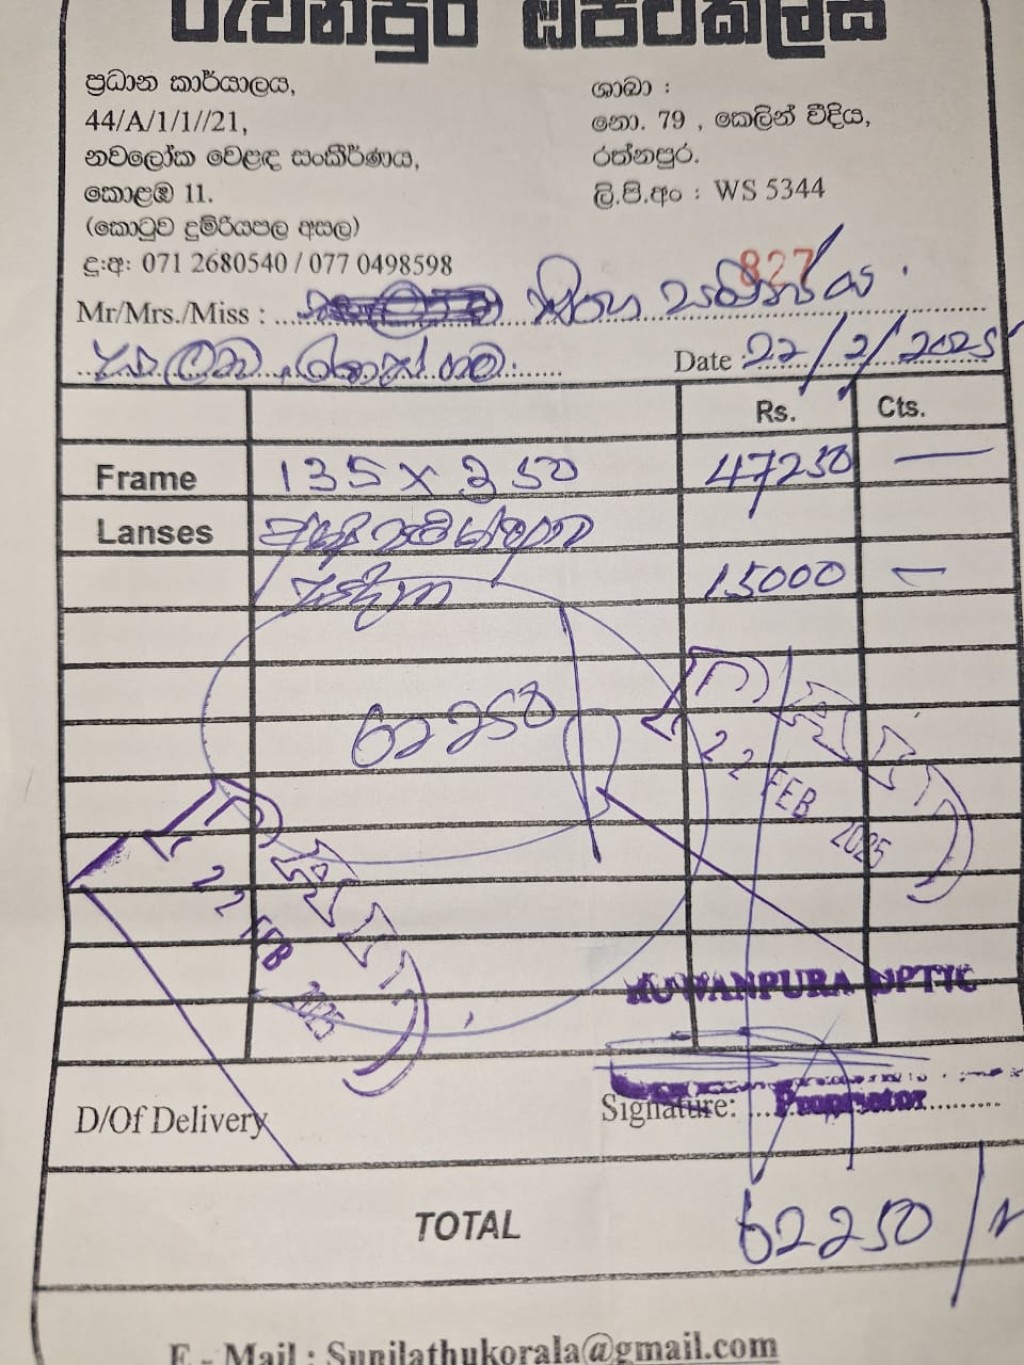 රුවන්පුර ඔප්ටිකල්ස්
ප්‍රධාන කාර්යාලය,
44/A/1/1//21,
නවලෝක වෙළඳ සංකීර්ණය,
කොළඹ 11.
(කොටුව දුම්රියපල අසල)
දු:අ: 071 2680540 / 077 0498598
ශාඛා :
නො. 79 , කෙලින් වීදිය,
රත්නපුර.
ලි.පි.අං : WS 5344
827
Mr/Mrs./Miss :
Date 22/2/2025
Rs. Cts.
Frame 135 x 350 47250 —
Lanses
15000 —
62250
PAID
22 FEB 2025
PAID
22 FEB 2025
RUWANPURA OPTIC
D/Of Delivery
Signature: Proprietor
TOTAL 62250/
E - Mail : Sunilathukorala@gmail.com